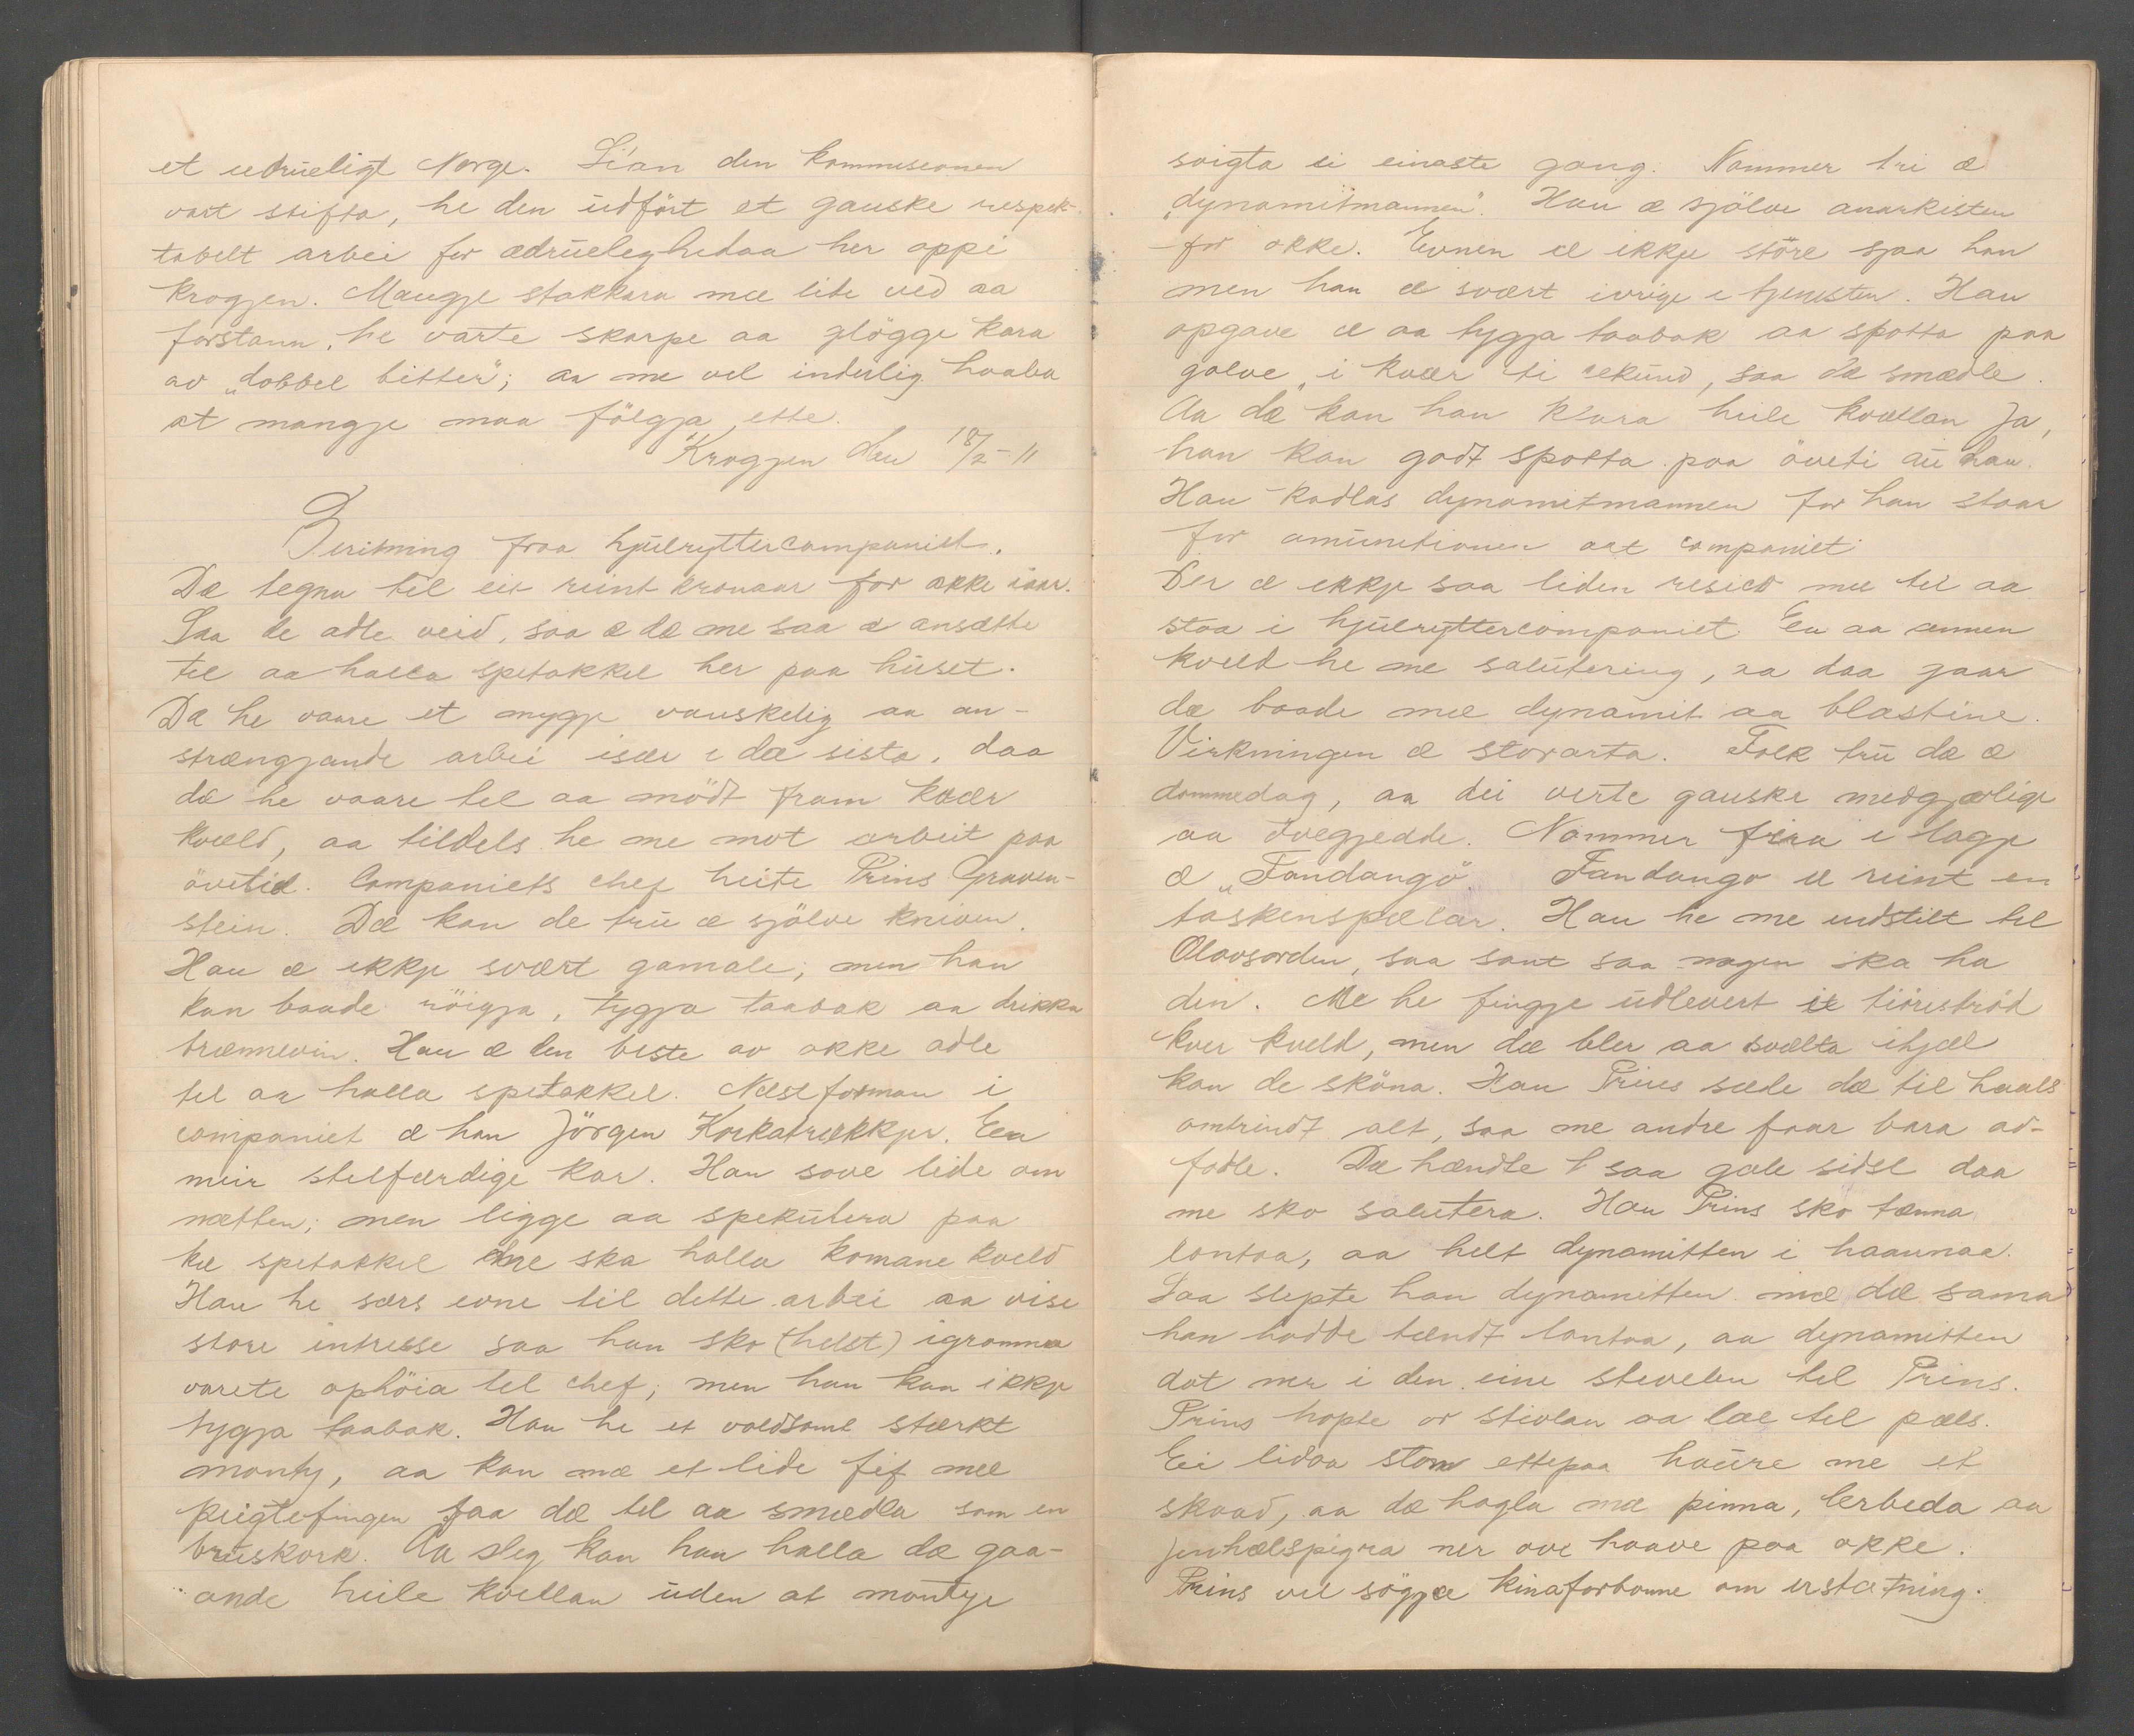 et uedrüeligt Norge. Sian den kommuseonen
vart stifta, he den üdfört et gauske respek-
tabelt arbei for ædrüeleghedaa her oppi
Krogjen. Maugje stakkara mæ lite ved aa
forstann, he varte skarpe aa glögge kara
av „dobbel bitter"; aa me vel inderlig haaba
at mangje maa fölgja ette.
Krogjen den 18/2-11
Beritning fraa hjülryttercompaniet.
Dæ tegna til eit reint kronaar for okke iaar.
Saa de adle veid, saa æ dæ me saa æ ansætte
til aa halla spetakkel her paa hüset.
Dæ he vaare et mygje vanskelig aa an-
strængjande arbei især i dæ sista, daa
dæ he vaare tel aa mödt fram kvær
kvæld, aa tildels he me mot arbeit paa
övetid. Companiets chef heite Prins Graven-
stein. Dæ kan de trü æ sjölve kniven.
Han æ ikkje svært gamale; men han
kan baade röigja, tygja taabak aa drikka
brænnevin. Han æ den beste av okke adle
tel aa halla spetakkel. Næstforman i
companiet æ han Jörgen Korkatrækkjer. Ein
meir stelfærdige kar. Han sove lide om
nætten; men ligge aa spekülera paa
ke spetakkel me ska halla komane kveld
Han he særs evne til dette arbei aa vise
store intresse saa han sko (helst) igronnen
varete ophöia tel chef; men han kan ikkje
tygja taabak. Han he et voldsomt stærkt
monty, aa kan mæ et lide fif mæ
peigtefingen faa dæ tel aa smædla som en
brüskork. Aa sleg kan han halla dæ gaa-
ande heile kvellan üden at montye
svigta ei einaste gong. Nommer tri æ
„dynamitmannen". Han æ sjölve anarkisten
for okke. Evnen æ ikkje störe sjaa han
men han æ svært ivrige i tjenesten. Han
opgave æ aa tygja taabak aa spotta paa
golve, i kvær ti sekünd, saa dæ smædle.
Aa dæ kan han klara heile kvællan Ja,
han kan godt spotta paa öveti aü han.
Han kadlas dynamitmannen for han staar
for amünitionen aat companiet
Der æ ikkje saa liden resico mæ tel aa
staa i hjülryttercompaniet. En aa annen
kveld he me salütering, aa daa gaar
dæ baade mæ dynamit aa blastine.
Virkningen æ storarta. Folk trü dæ æ
dommedag, aa dei verte gauske medgjørlige
aa övegjedde. Nommer fira i lagje
æ „Fandango". Fandango æ reint en
taskenspælar. Han he me indstilt til
Olavsorden, saa sant saa nogen ska ha
din. Me he fingje üdlevert ei tiörestrød
kver kveld, men dæ bler aa svælta ihjæl
kan de sköna. Han Prins sæde dæ til haals
omtrindt alt, saa me andre faar bara ad-
fadle. Dæ hændte saa gale sidst daa
me sko salutera. Han Prins sko tænna
lontaa, aa helt dynamitten i haannaa.
Saa slepte han dynamitten mæ dæ sama
han hadde tændt lontaa, aa dynamitten
dat ner i den eine stevelen tel Prins.
Prins hopte or stivlan aa læe tel pæls.
Ei lidaa ston ettepaa haüre me et
skaad, aa dæ hagla mæ pinna, lerbeda aa
jenhælspigra ner ove haave paa okke.
Prins vil sögja kinaforbonne om erstatning.